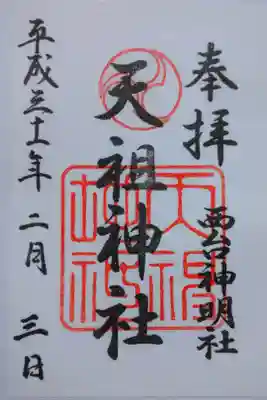 奉拝
西台神明社
天祖神社
平成三十一年二月三日
天祖神社